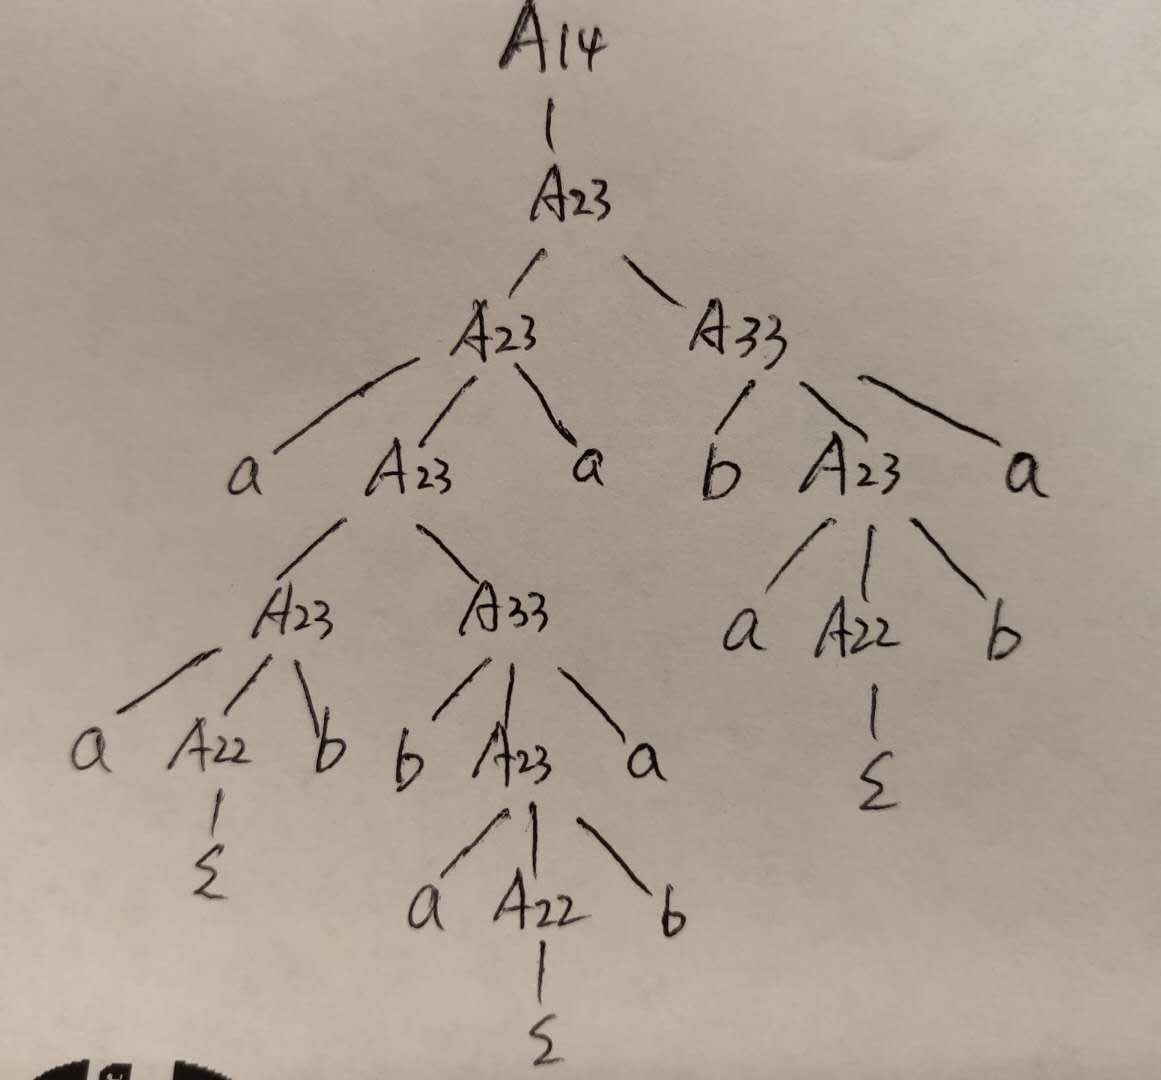 A14
A23
A23 A33
a A23 a b A23 a
A23 A33 a A22 b
a A22 b b A23 a ε
ε a A22 b
ε